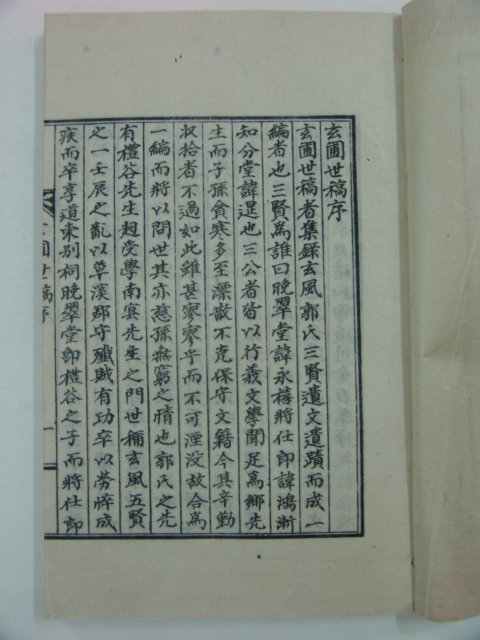 玄圃世稿序
玄圃世稿者集錄玄風郭氏三賢遺文遺蹟而成一
編者也三賢爲誰曰晩翠堂諱永禧將仕郎諱鴻漸
知分堂諱是也三公者皆以行義文學聞足爲鄕先
生而子孫貧寒多至漂散不克保守文籍今其辛勤
収拾者不過如此雖甚寥寥乎而不可湮没故合爲
一編而將以問世其亦慈孫無窮之情也郭氏之先
有禮谷先生起受學南冥先生之門世稱玄風五賢
之一壬辰之亂以草溪郡守殲賊有功卒以勞瘁成
疾而卒享道東別祠晩翠堂卽禮谷之子而將仕郎
玄圃世稿序
一